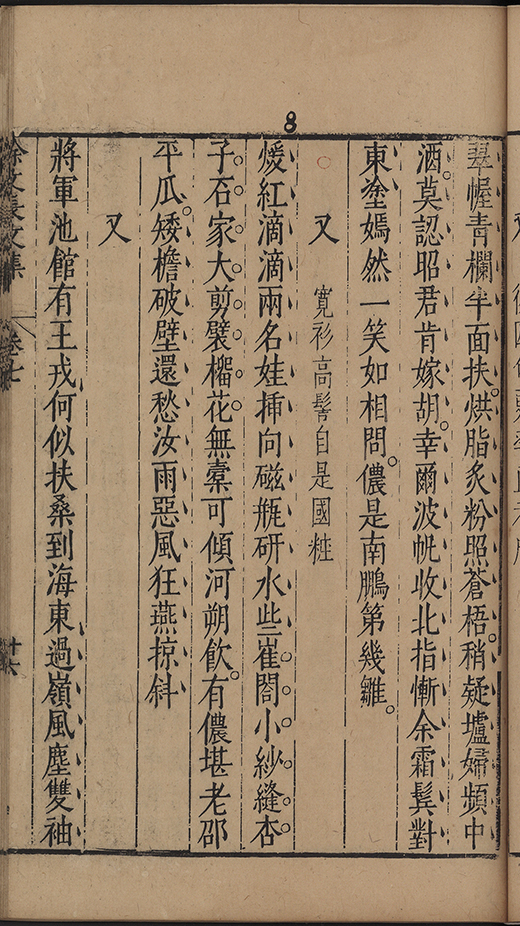 8
翠幄青欄半面扶烘脂炙粉照蒼梧稍疑壚婦頻中
酒莫認昭君肯嫁胡幸爾波帆收北指慚余霜鬂對
東塗嫣然一笑如相問儂是南鵬第幾雛
又 寛衫高髻自是國粧
煖紅滴滴兩名娃揷向磁瓶硏水些崔閤小紗縫杏
子石家大剪襞榴花無槖可傾河朔飲有儂堪老邵
平瓜矮檐破壁還愁汝雨惡風狂燕掠斜
又
將軍池館有王戎何似扶桑到海東過嶺風塵雙袖
徐文長文集 卷七 十六